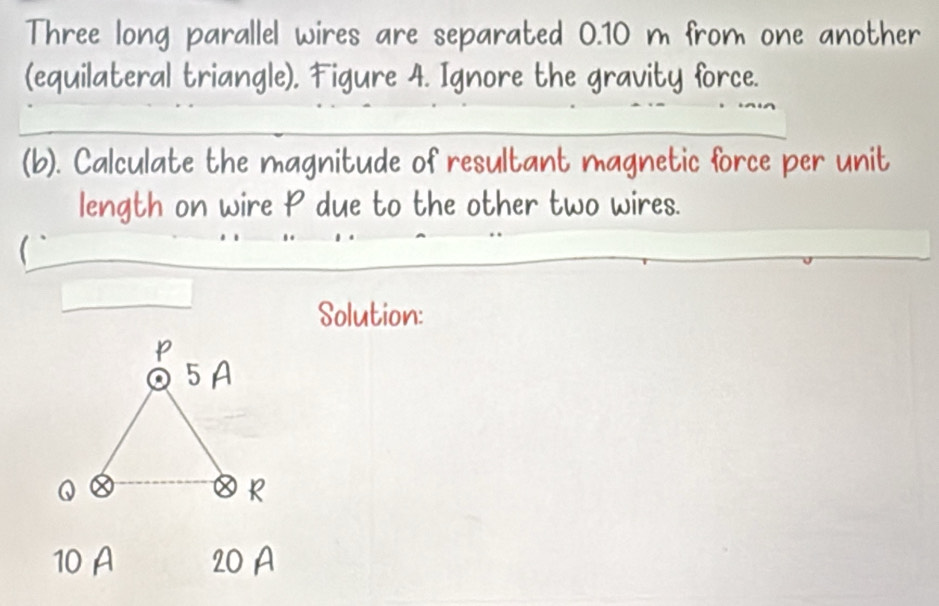 Three long parallel wires are separated 0.10 m from one another
(equilateral triangle). Figure 4. Ignore the gravity force.
(b). Calculate the magnitude of resultant magnetic force per unit
length on wire P due to the other two wires.
(
Solution:
P
5 A
Q
R
10 A 20 A